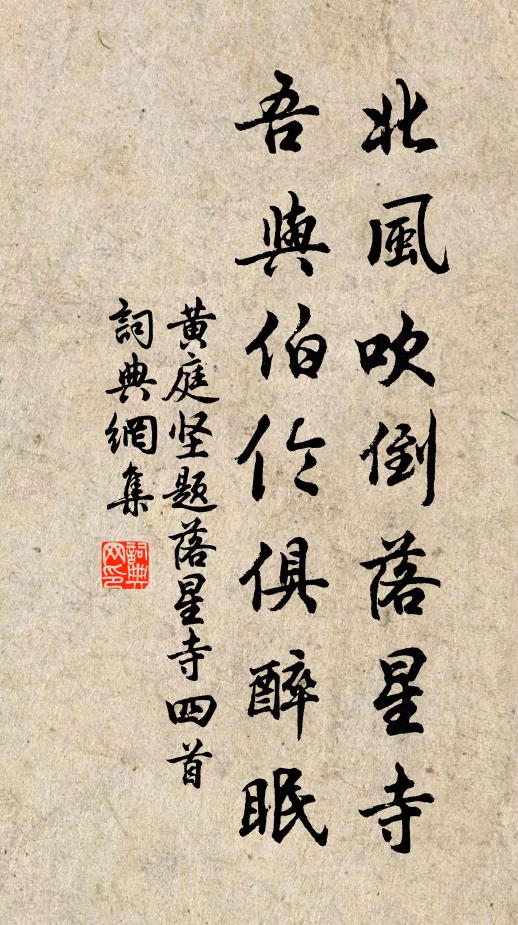 北風吹倒落星寺
吾與伯伶俱醉眠
黄庭坚题落星寺四首
詞典網集
詞典網印